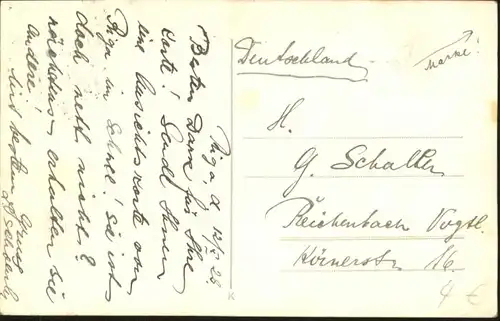 Riga, d. 12/I 28.
Besten Dank für Ihre
Karte! Sende Ihnen
eine Ansichtskarte von
Riga im Schnee! Sie ist
doch nett nicht?
nächstens erhalten Sie
andere!
Mit besten
Gruss
Deutschland
Marke!
H.
G. Schaller
Reichenbach Vogtl.
Körnerstr. 16.
4 €